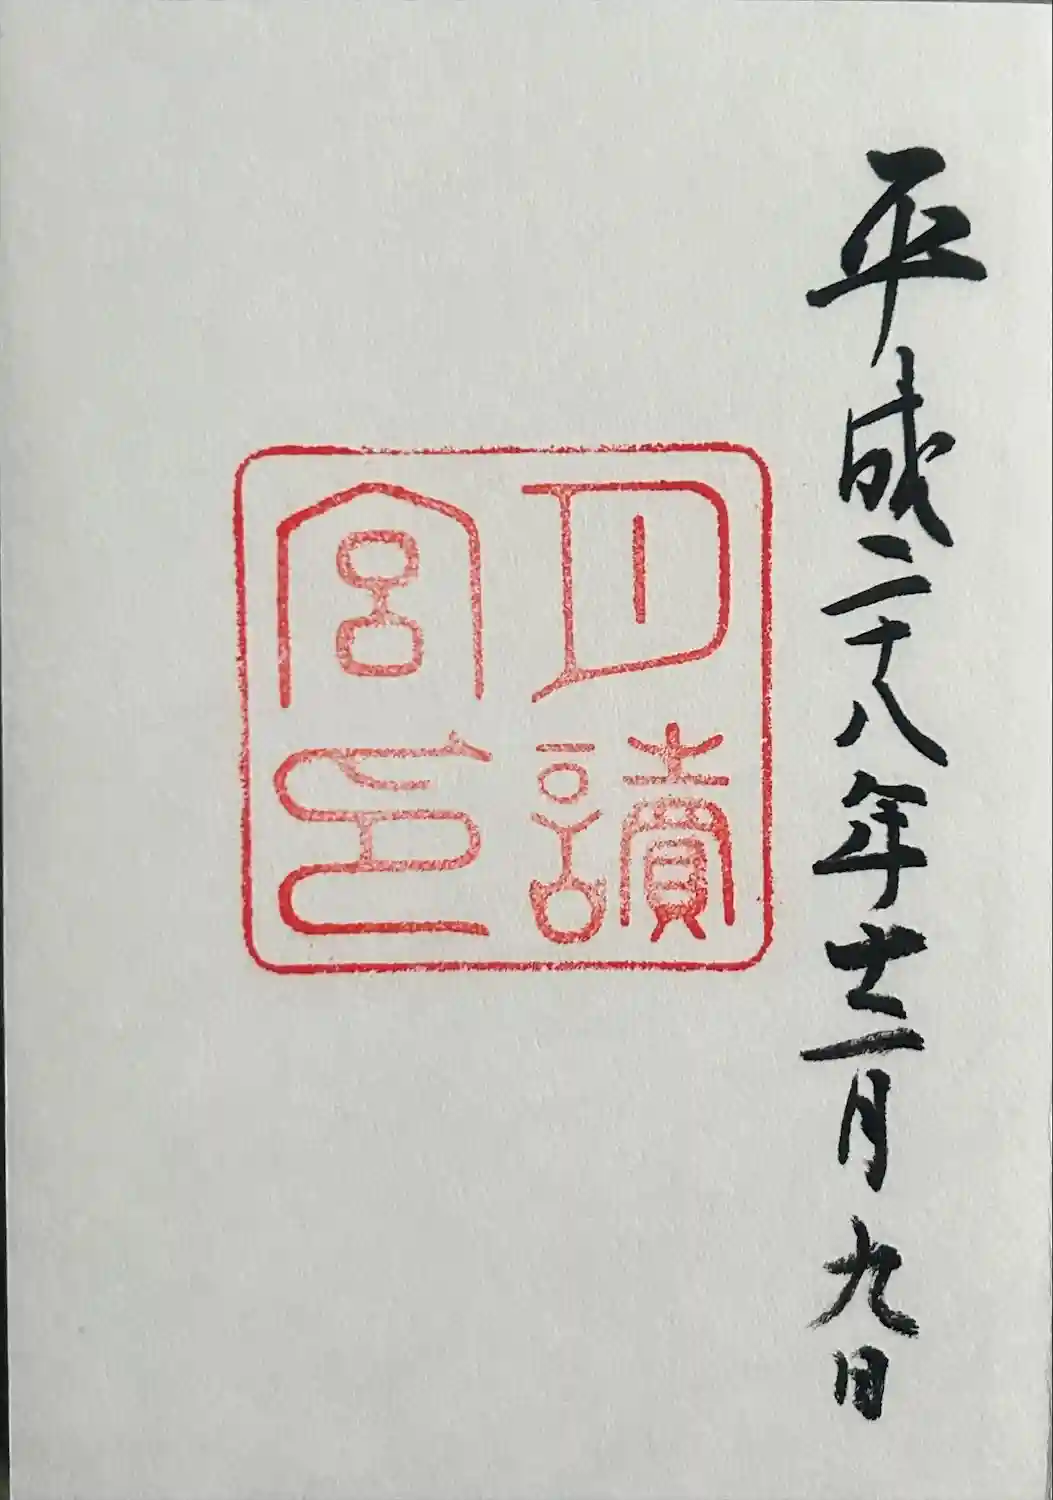 平成二十八年十二月九日
月讀
宮印